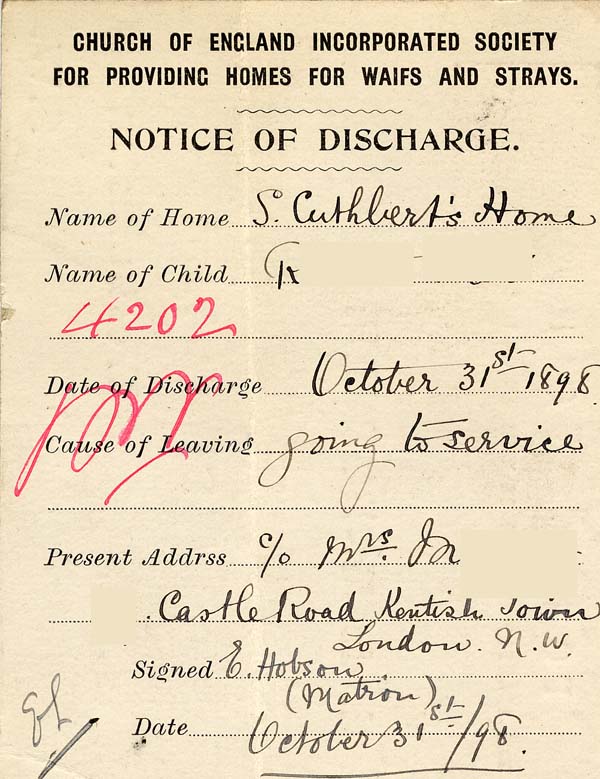 CHURCH OF ENGLAND INCORPORATED SOCIETY
FOR PROVIDING HOMES FOR WAIFS AND STRAYS.
NOTICE OF DISCHARGE.
Name of Home S. Cuthbert's Home
Name of Child
4202
Date of Discharge October 31st 1898
Cause of Leaving going to service
Present Addrss c/o Mrs. M
Castle Road Kentish Town
London. N.W.
Signed E. Hobson
(Matron)
Date October 31st/98.